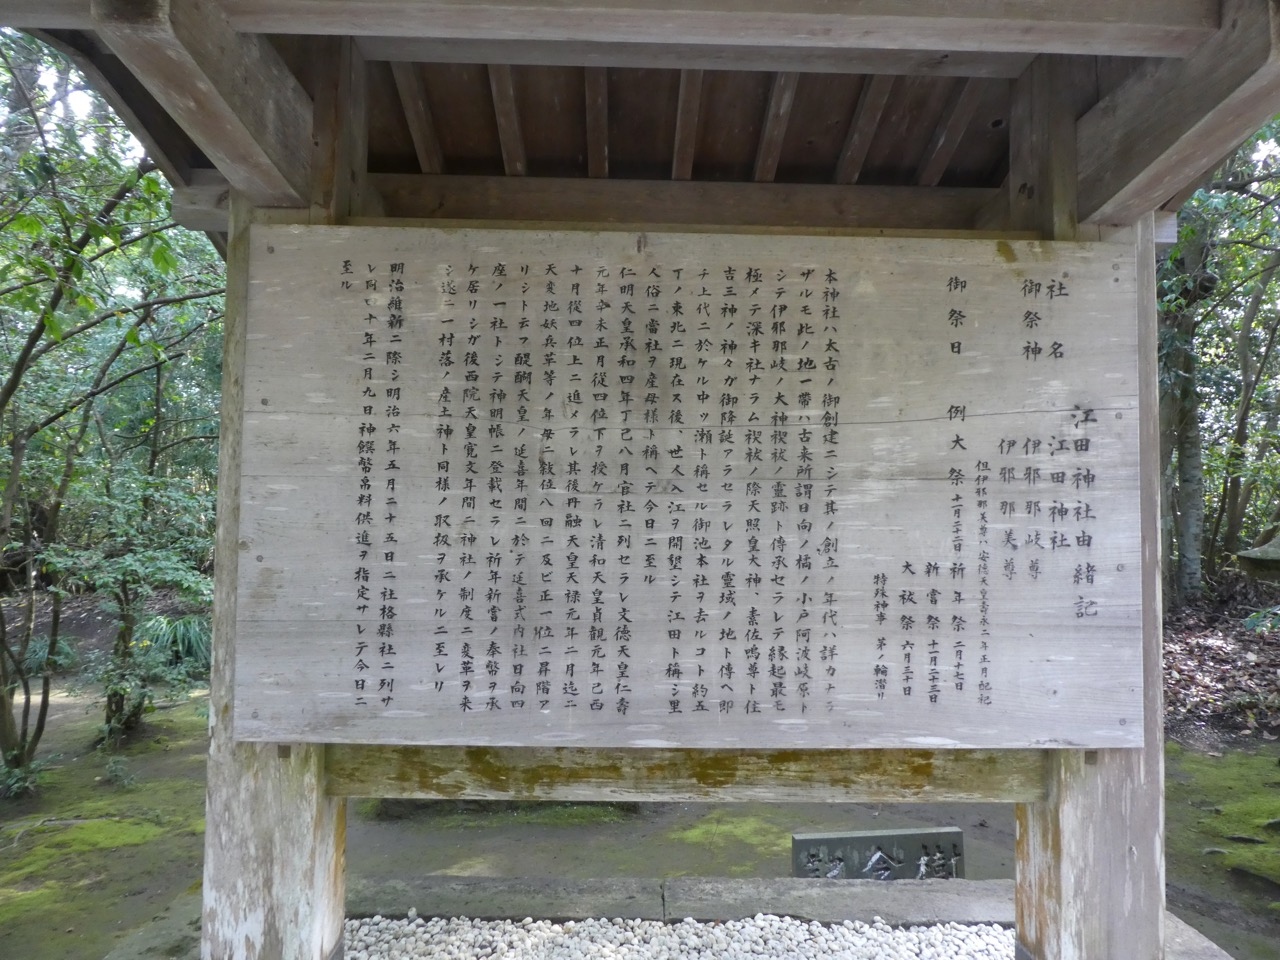 江田神社由緒記
社名　江田神社
御祭神　伊邪那岐尊
伊邪那美尊
但伊邪那美尊ハ安徳天皇壽永二年正月配祀
御祭日　例大祭　十一月二十二日　祈年祭　二月十七日
新嘗祭　十一月二十三日
大祓祭　六月三十日
特殊神事　茅ノ輪潜リ
本神社ハ太古ノ御創建ニシテ其ノ創立ノ年代ハ詳カナラ
ザルモ此ノ地一帯ハ古来所謂日向ノ橘ノ小戸阿波岐原ト
シテ伊邪那岐ノ大神禊祓ノ霊跡ト傳承セラレテ縁起最モ
極メテ深キ社ナラム禊祓ノ際天照皇大神、素佐鳴尊ト住
吉三神ノ神々ガ御降誕アラセラレタル霊域ノ地ト傳ヘ即
チ上代ニ於ケル中ッ瀬ト稱セル御池本社ヲ去ルコト約五
丁ノ東北ニ現在ス後、世人入江ヲ開墾シテ江田ト稱シ里
人俗ニ當社ヲ産母様ト稱ヘテ今日ニ至ル
仁明天皇承和四年丁巳八月官社ニ列セラレ文徳天皇仁壽
元年辛未正月従四位下ヲ授ケラレ清和天皇貞観元年己酉
十月従四位上ニ進メラレ其後冉融天皇天禄元年二月迄ニ
天変地妖兵革等ノ年毎ニ敍位八回ニ及ビ正一位ニ昇階ア
リシト云フ醍醐天皇ノ延喜年間ニ於テ延喜式内社日向四
座ノ一社トシテ神明帳ニ登載セラレ祈年新嘗ノ奉幣ヲ承
ケ居リシガ後西院天皇寛文年間ニ神社ノ制度ニ変革ヲ来
シ遂ニ一村落ノ産土神ト同様ノ取扱ヲ承ケルニ至レリ
明治維新ニ際シ明治六年五月二十五日ニ社格縣社ニ列サ
レ同四十年二月九日神饌幣帛料供進ヲ指定サレテ今日ニ
至ル